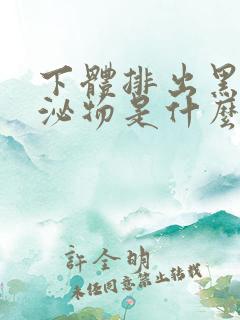 下體排出黑
泌物是什麼
許全明
未经同意禁止转载